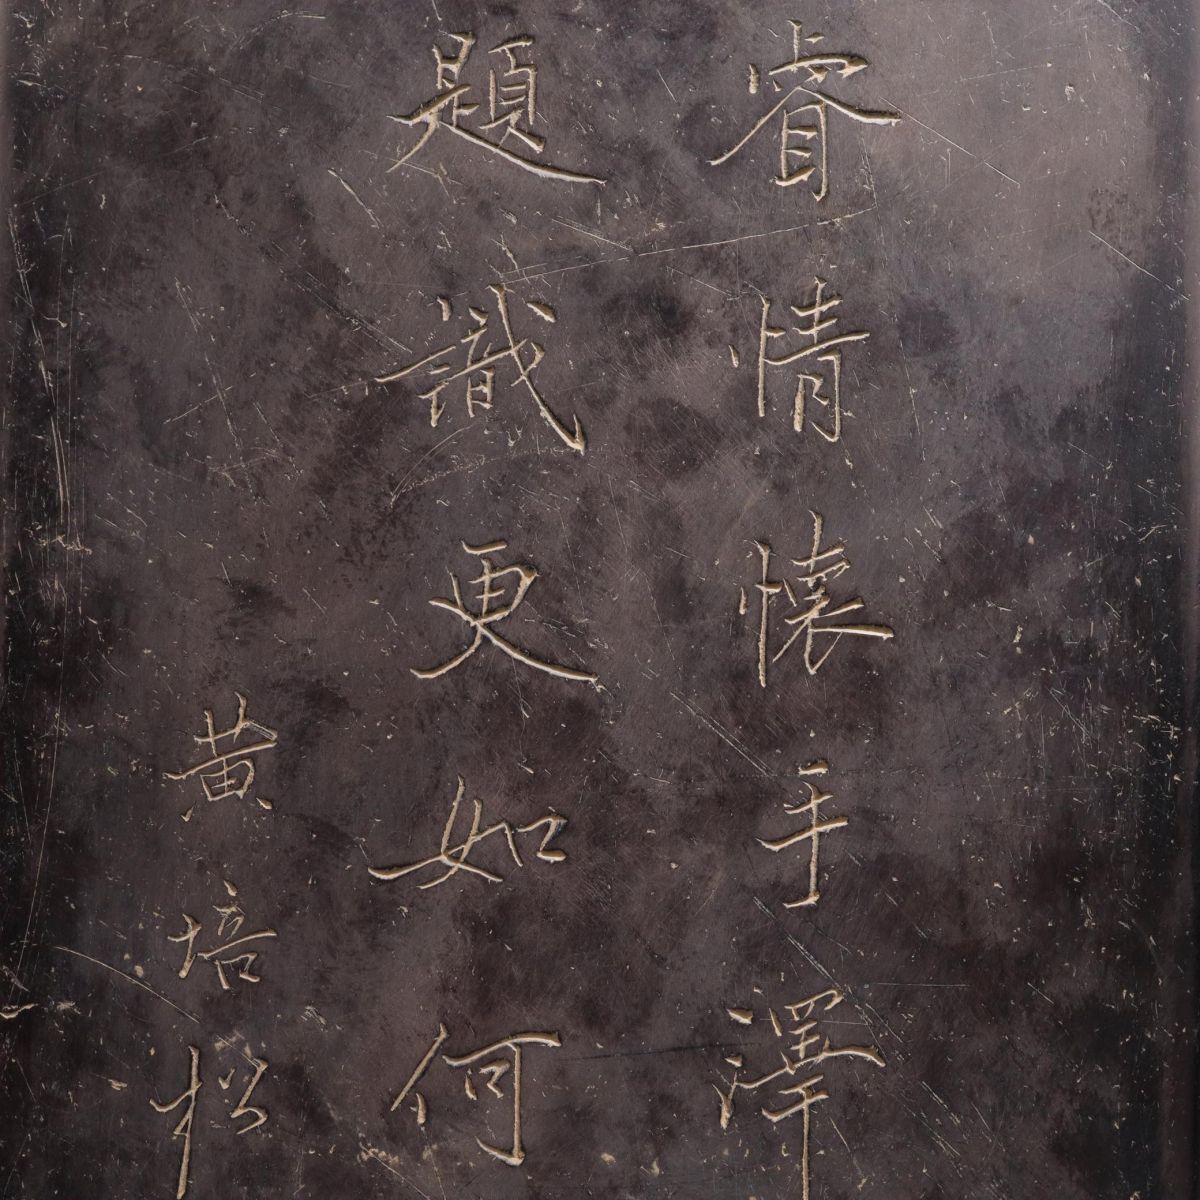 睿情懷手澤
題識更如何
黄培松